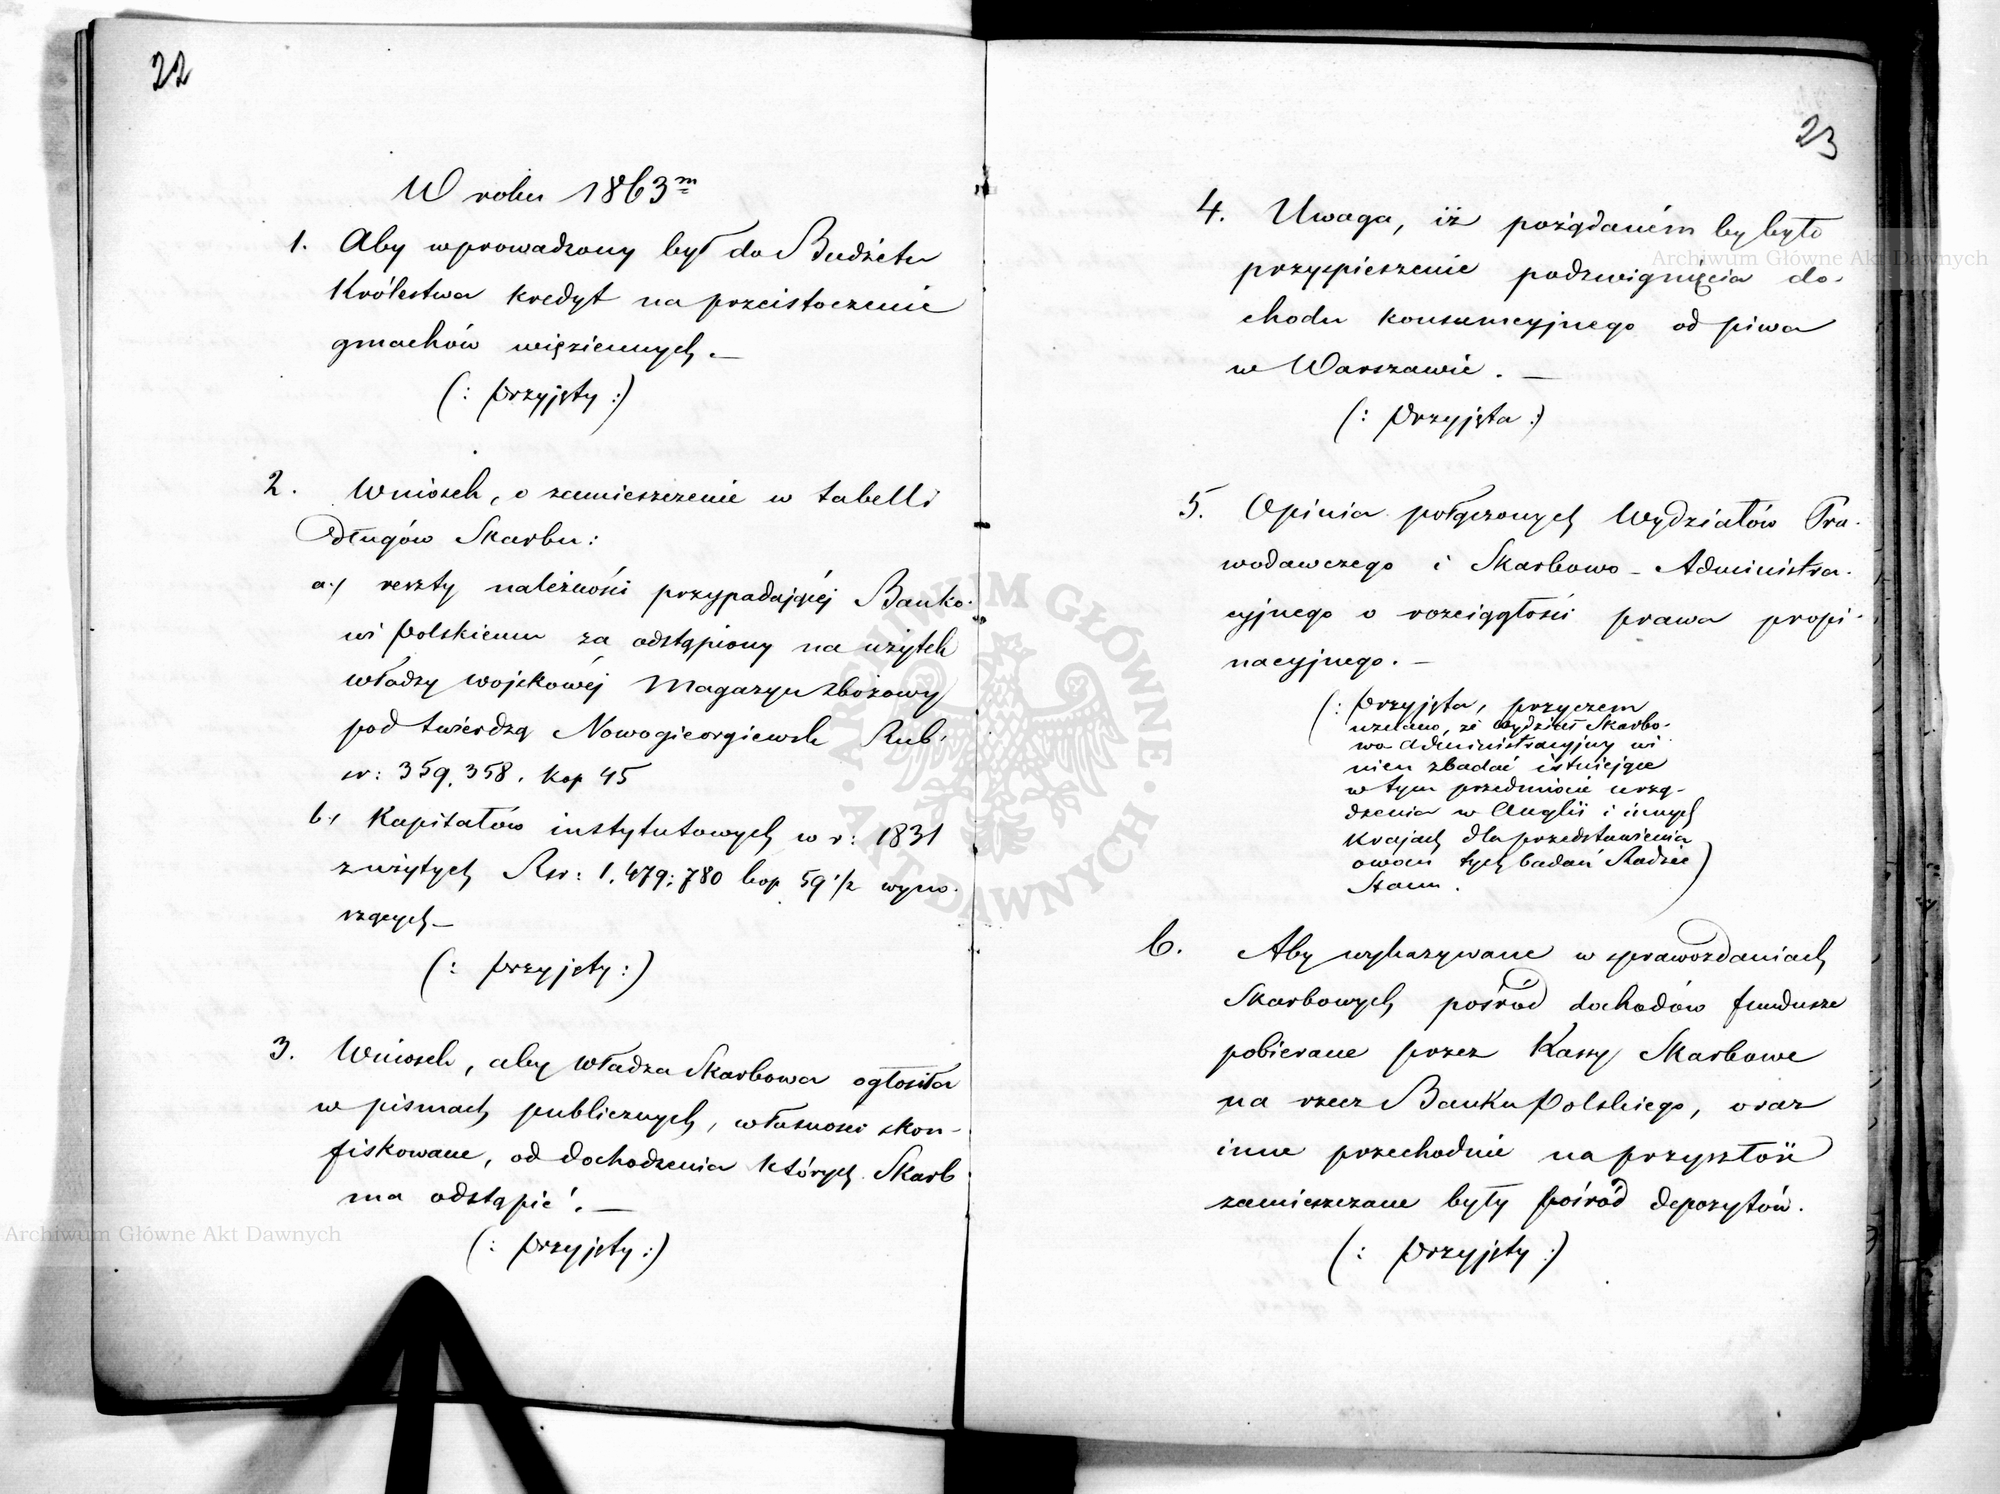 22
W roku 1863m
1. Aby wprowadzony był do Budżetu
Królestwa kredyt na przeistoczenie
gmachów więziennych. —
(: przyjęty :)
2. Wniosek, o zamieszczenie w tabelli
Długów Skarbu:
a./ reszty należności przypadającéj Banko-
wi Polskiemu za odstąpiony na użytek
władzy wojskowéj Magazyn zbożowy
pod twierdzą Nowogieorgiewsk Rub.
sr: 359,358. kop 45
b./ Kapitałów instytutowych w r: 1831
zużytych Rsr: 1,479,780 kop 59 1/2 wyno-
szących —
(: przyjęty :)
3. Wniosek, aby Władza Skarbowa ogłosiła
w pismach publicznych, własności skon-
fiskowane, od dochodzenia których Skarb
ma odstąpić. —
(: przyjęty :)
23
4. Uwaga, iż pożądaném by było
przyspieszenie podzwignięcia do-
chodu konsumcyjnego od piwa
w Warszawie. —
(: Przyjęta :)
5. Opinia połączonych Wydziałów Pra-
wodawczego i Skarbowo - Administra-
cyjnego o rozciągłości prawa propi-
nacyjnego. —
(: Przyjęta, przyczem
uznano, że Wydział Skarbo-
wo Administracyjny wi-
nien zbadać istniejące
w tym przedmiocie urzą-
dzenia w Anglii i innych
Krajach dla przedstawienia
owoców tych badań Radzie
Stanu. )
6. Aby wykazywane w sprawozdaniach
Skarbowych pośród dochodów fundusze
pobierane przez Kassy Skarbowe
na rzecz Banku Polskiego, oraz
inne przechodnie na przyszłość
zamieszczane były pośród depozytów.
(: Przyjęty :)
Archiwum Główne Akt Dawnych
Archiwum Główne Akt Dawnych
Archiwum Główne Akt Dawnych
· ARCHIWUM GŁÓWNE · AKT DAWNYCH ·